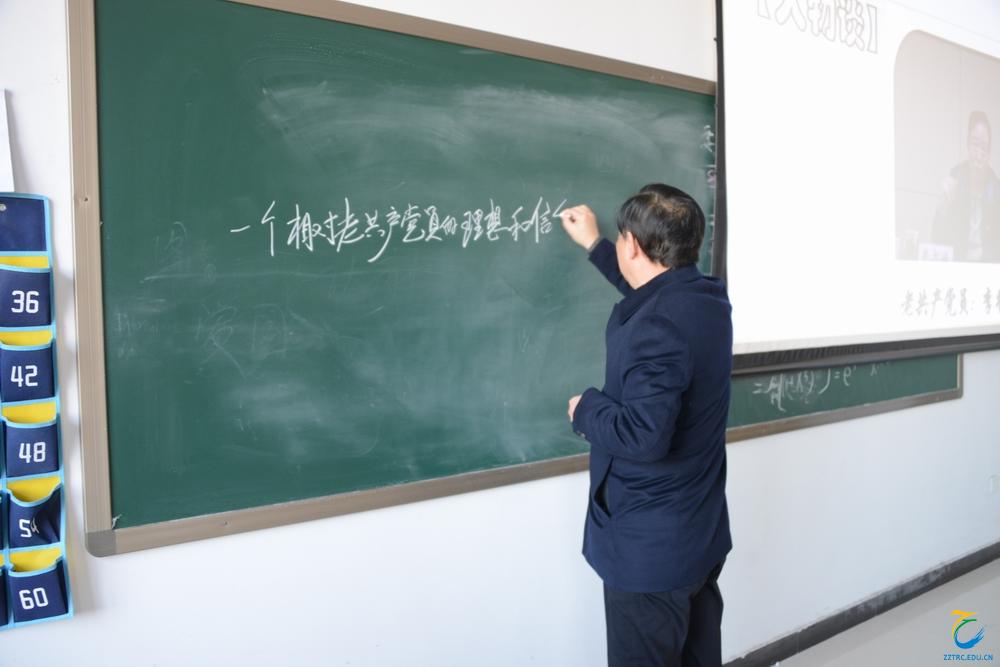 一个相对老共产党员的理想和信
【人物谈】
老共产党员：李
36
42
48
54
60
ZZTRC.EDU.CN